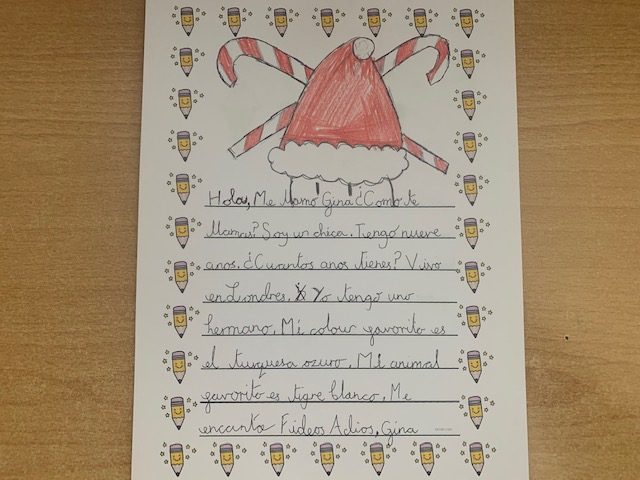 Hola, Me llamo Gina ¿Como te
llamas? Soy un chica. Tiengo nueve
anos. ¿Cuantos anos tienes? Vivo
en Londres, Yo tengo uno
hermano. Mi colour favorito es
el turquesa ozuro. Mi animal
favorito es tigre blanco. Me
encanta Fideos Adios, Gina